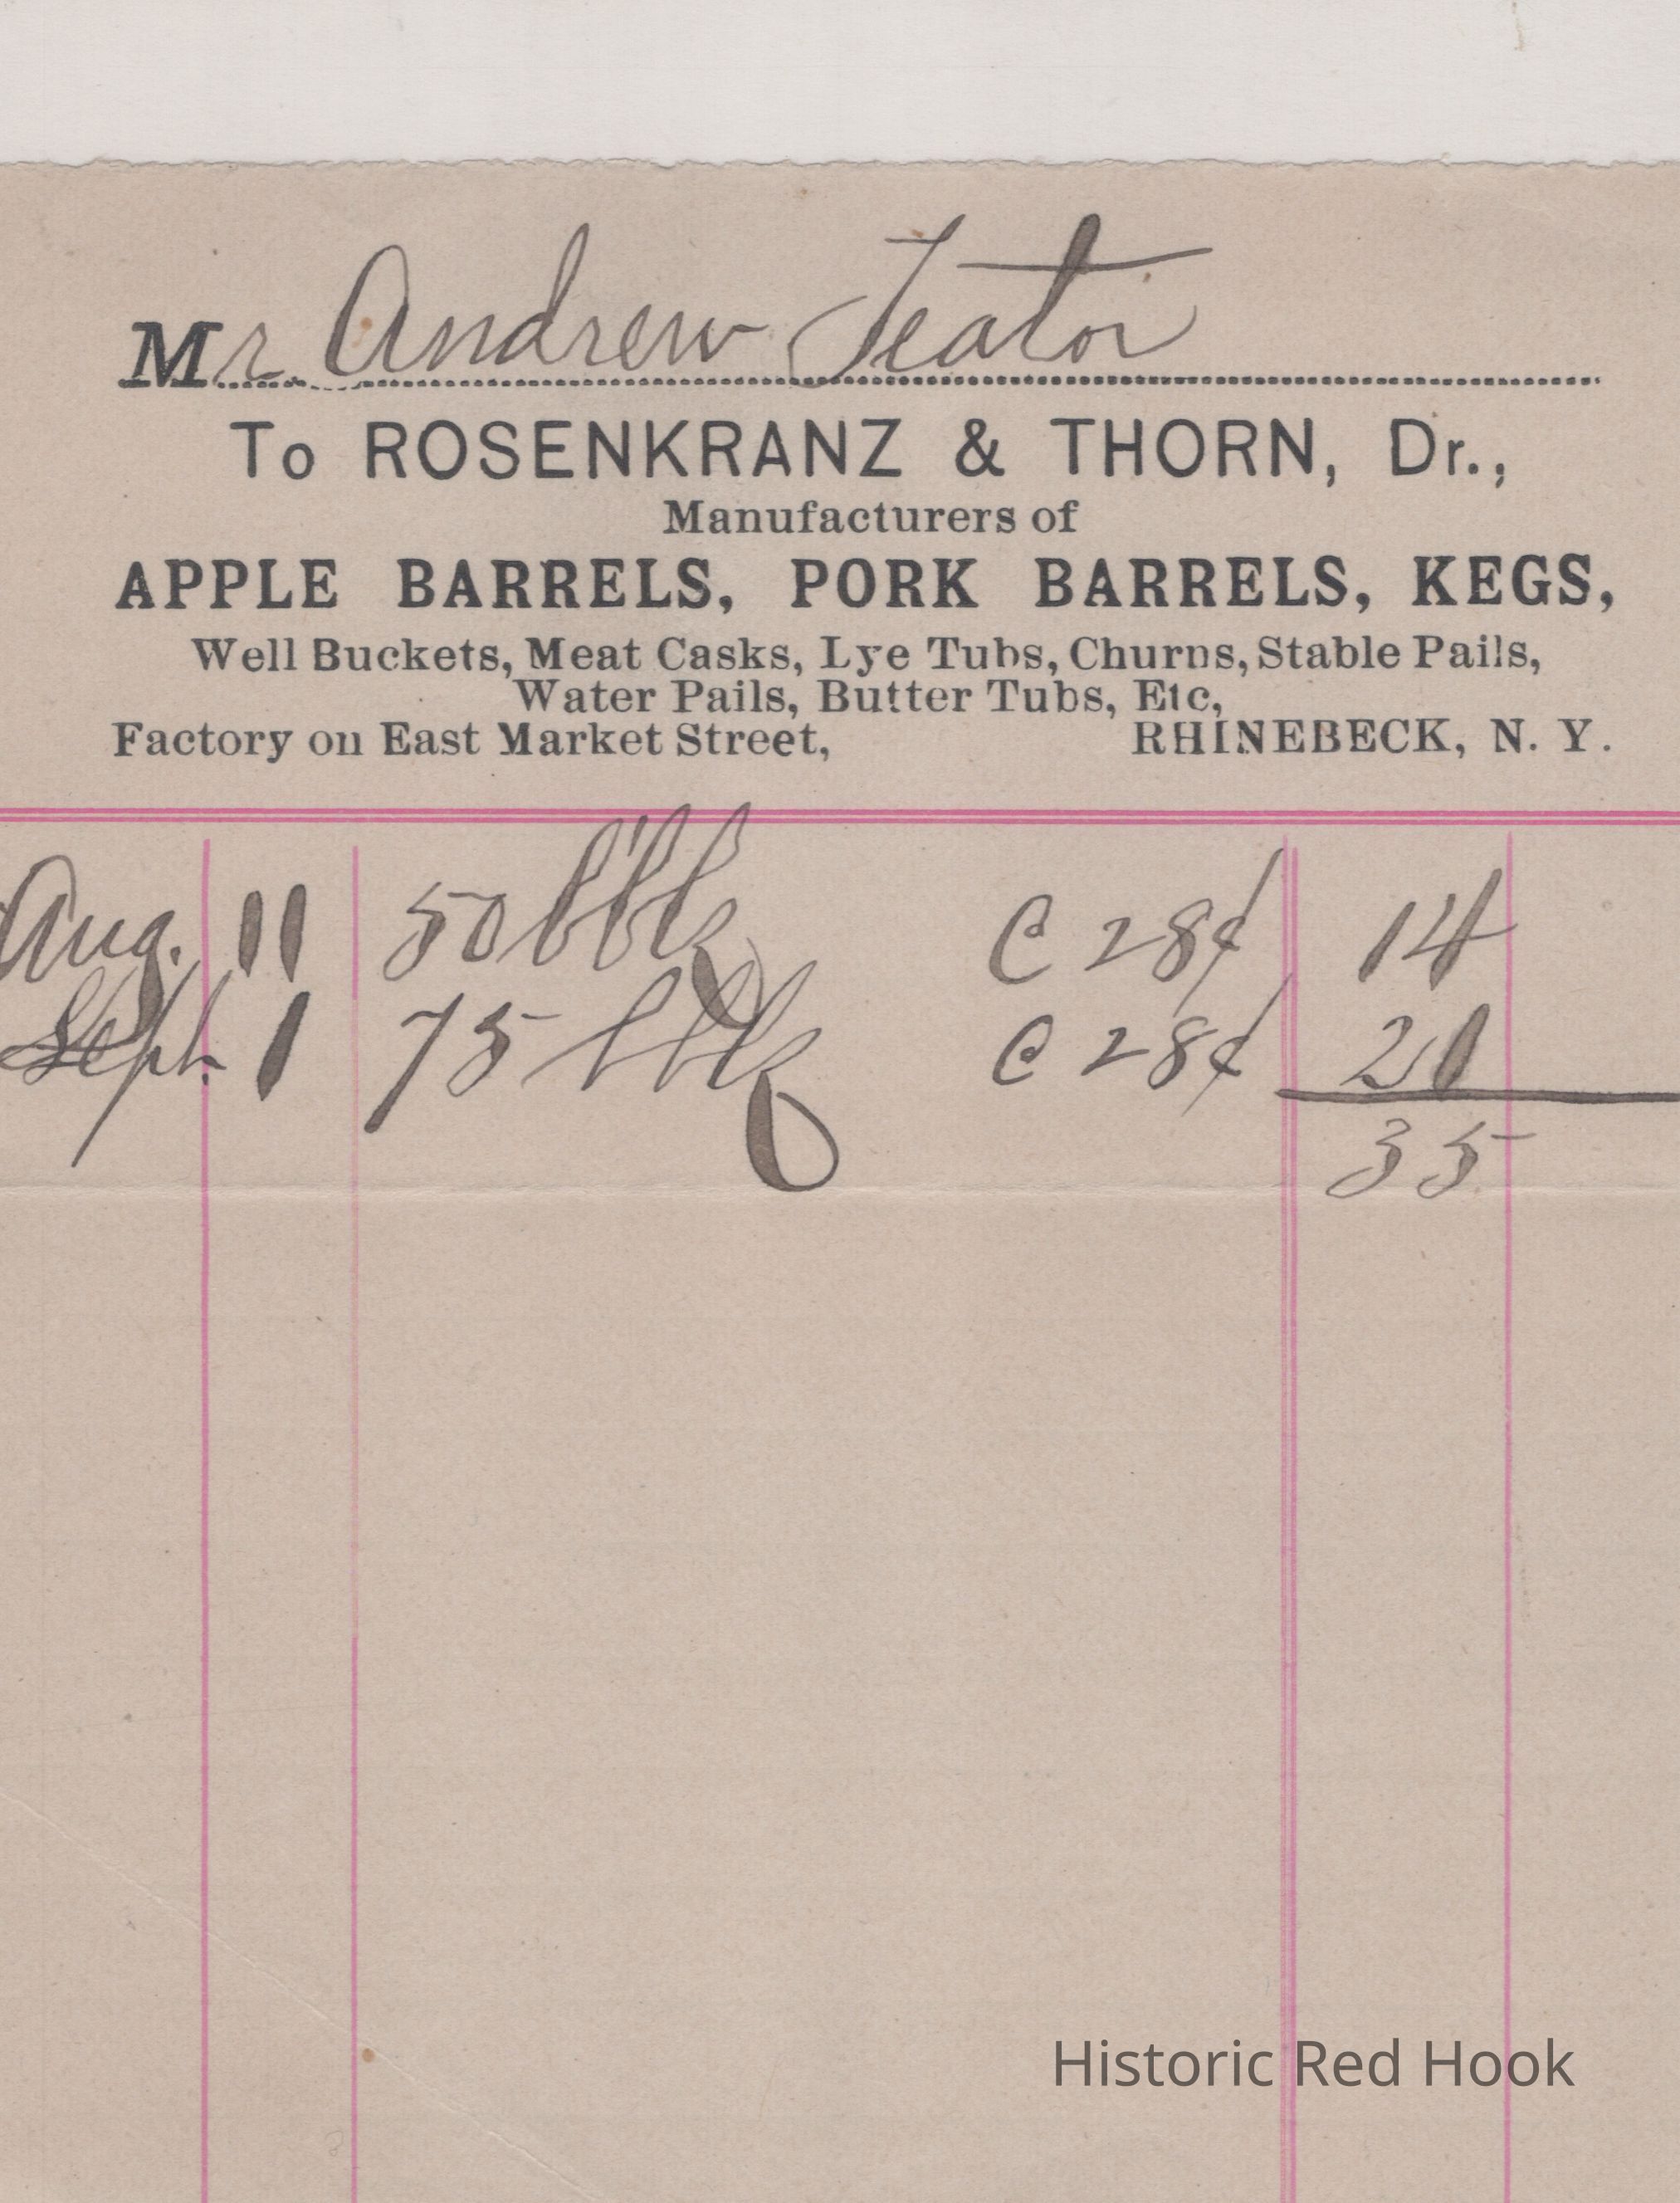 Mr. Andrew Teator
To ROSENKRANZ & THORN, Dr.,
Manufacturers of
APPLE BARRELS, PORK BARRELS, KEGS,
Well Buckets, Meat Casks, Lye Tubs, Churns, Stable Pails,
Water Pails, Butter Tubs, Etc,
Factory on East Market Street, RHINEBECK, N. Y.
Aug. 11 50 bbls @ 28¢ 14
Sept. 1 75 bbls @ 28¢ 21
35
Historic Red Hook